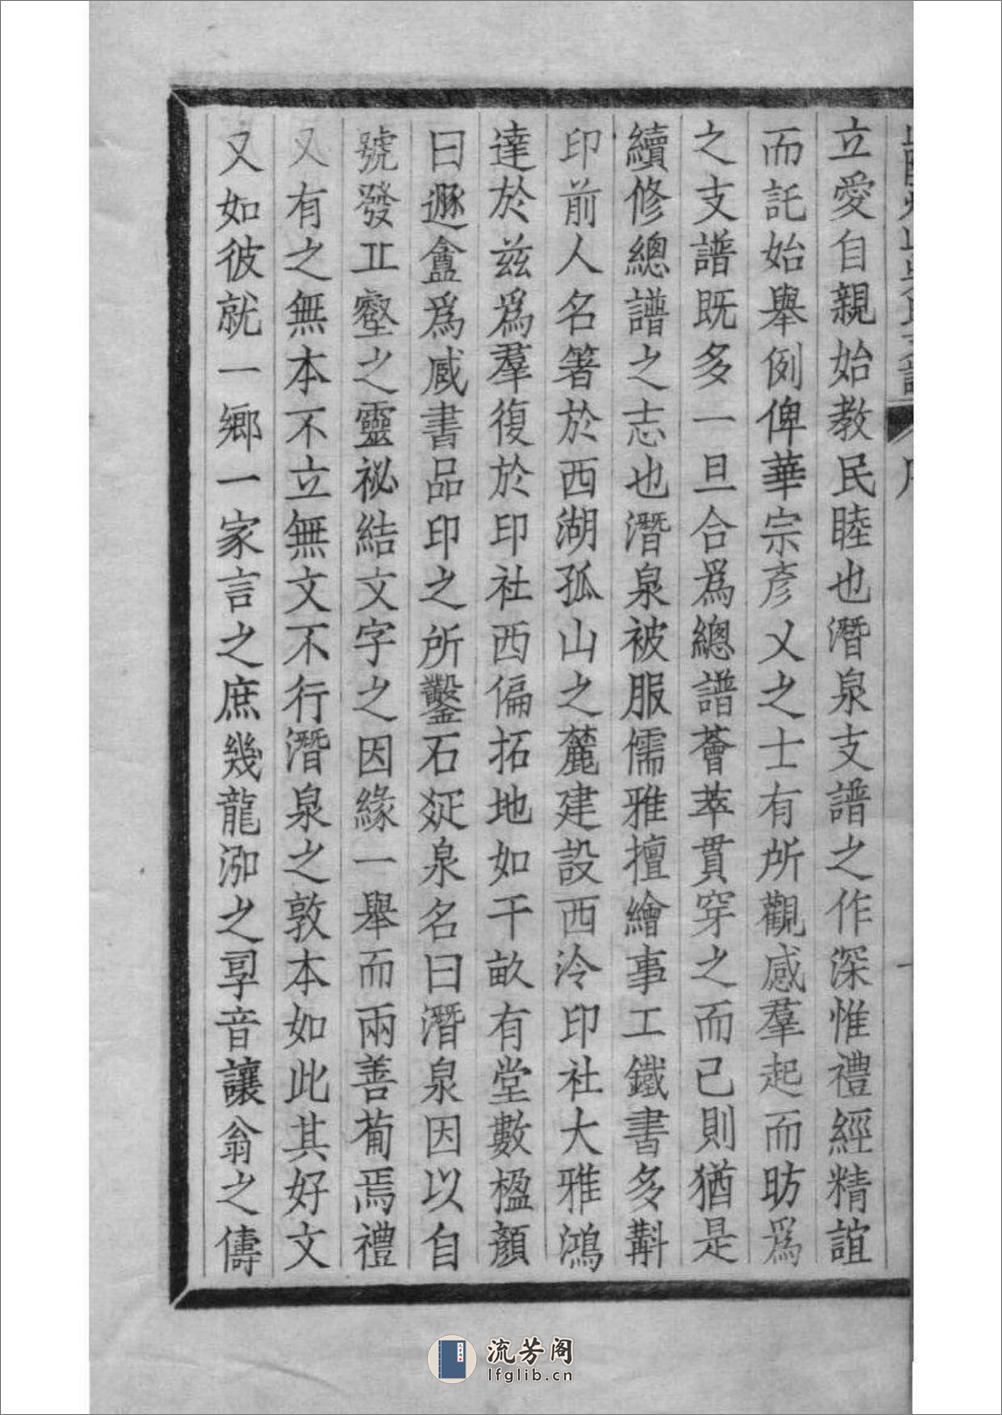 立愛自親始教民睦也潛泉支譜之作深惟禮經精誼
而託始舉例俾華宗彥乂之士有所觀感羣起而昉爲
之支譜既多一旦合爲總譜薈萃貫穿之而已則猶是
續修總譜之志也潛泉被服儒雅擅繪事工鐵書多斠
印前人名箸於西湖孤山之麓建設西泠印社大雅鴻
達於兹爲羣復於印社西偏拓地如干畝有堂數楹顏
曰遯盦爲臧書品印之所鑿石㢟泉名曰潛泉因以自
號發丠壑之靈祕結文字之因緣一舉而兩善葡焉禮
又有之無本不立無文不行潛泉之敦本如此其好文
又如彼就一鄉一家言之庶幾龍泖之㝁音讓翁之儔
序
一
流芳阁
lfglib.cn